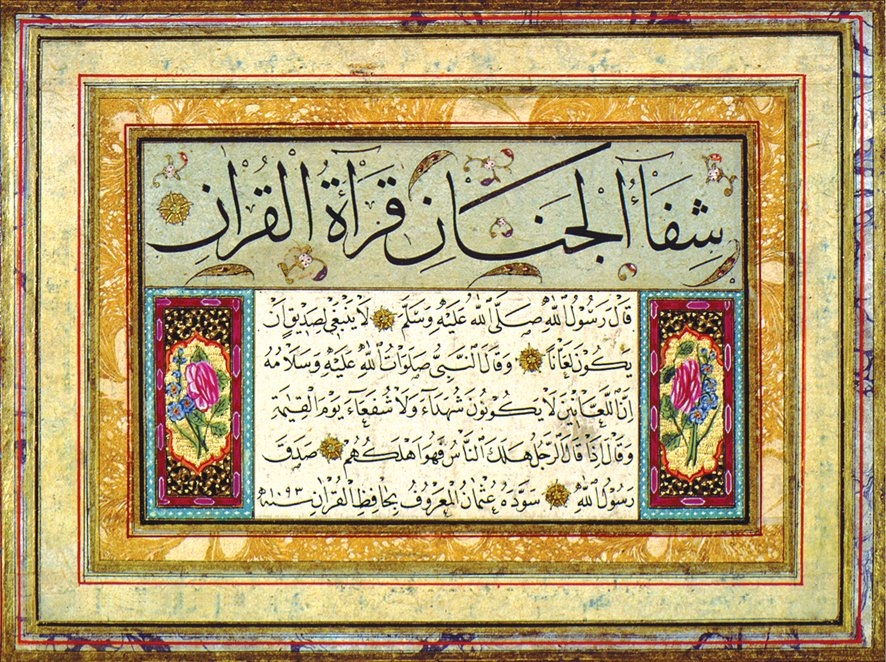 شِفَآءُ الْجَنَانِ قِرَآءَةُ الْقُرْاٰنِ
قَالَ رَسُولُ اللّٰهِ صَلَّى اللّٰهُ عَلَيْهِ وَسَلَّمَ لَا يَنْبَغِي لِصَدِيقٍ اَنْ
يَكُونَ لَعَّانًا وَقَالَ النَّبِيُّ صَلَوَاتُ اللّٰهِ عَلَيْهِ وَسَلَامُهُ
اِنَّ اللَّعَّانِينَ لَا يَكُونُونَ شُهَدَآءَ وَلَا شُفَعَآءَ يَوْمَ الْقِيٰمَةِ
وَقَالَ اِذَا قَالَ الرَّجُلُ هَلَكَ النَّاسُ فَهُوَ اَهْلَكُهُمْ صَدَقَ
رَسُولُ اللّٰهِ سَوَّدَهُ عُثْمَانُ الْمَعْرُوفُ بِحَافِظِ الْقُرْاٰنِ سنة ١٠٩٣